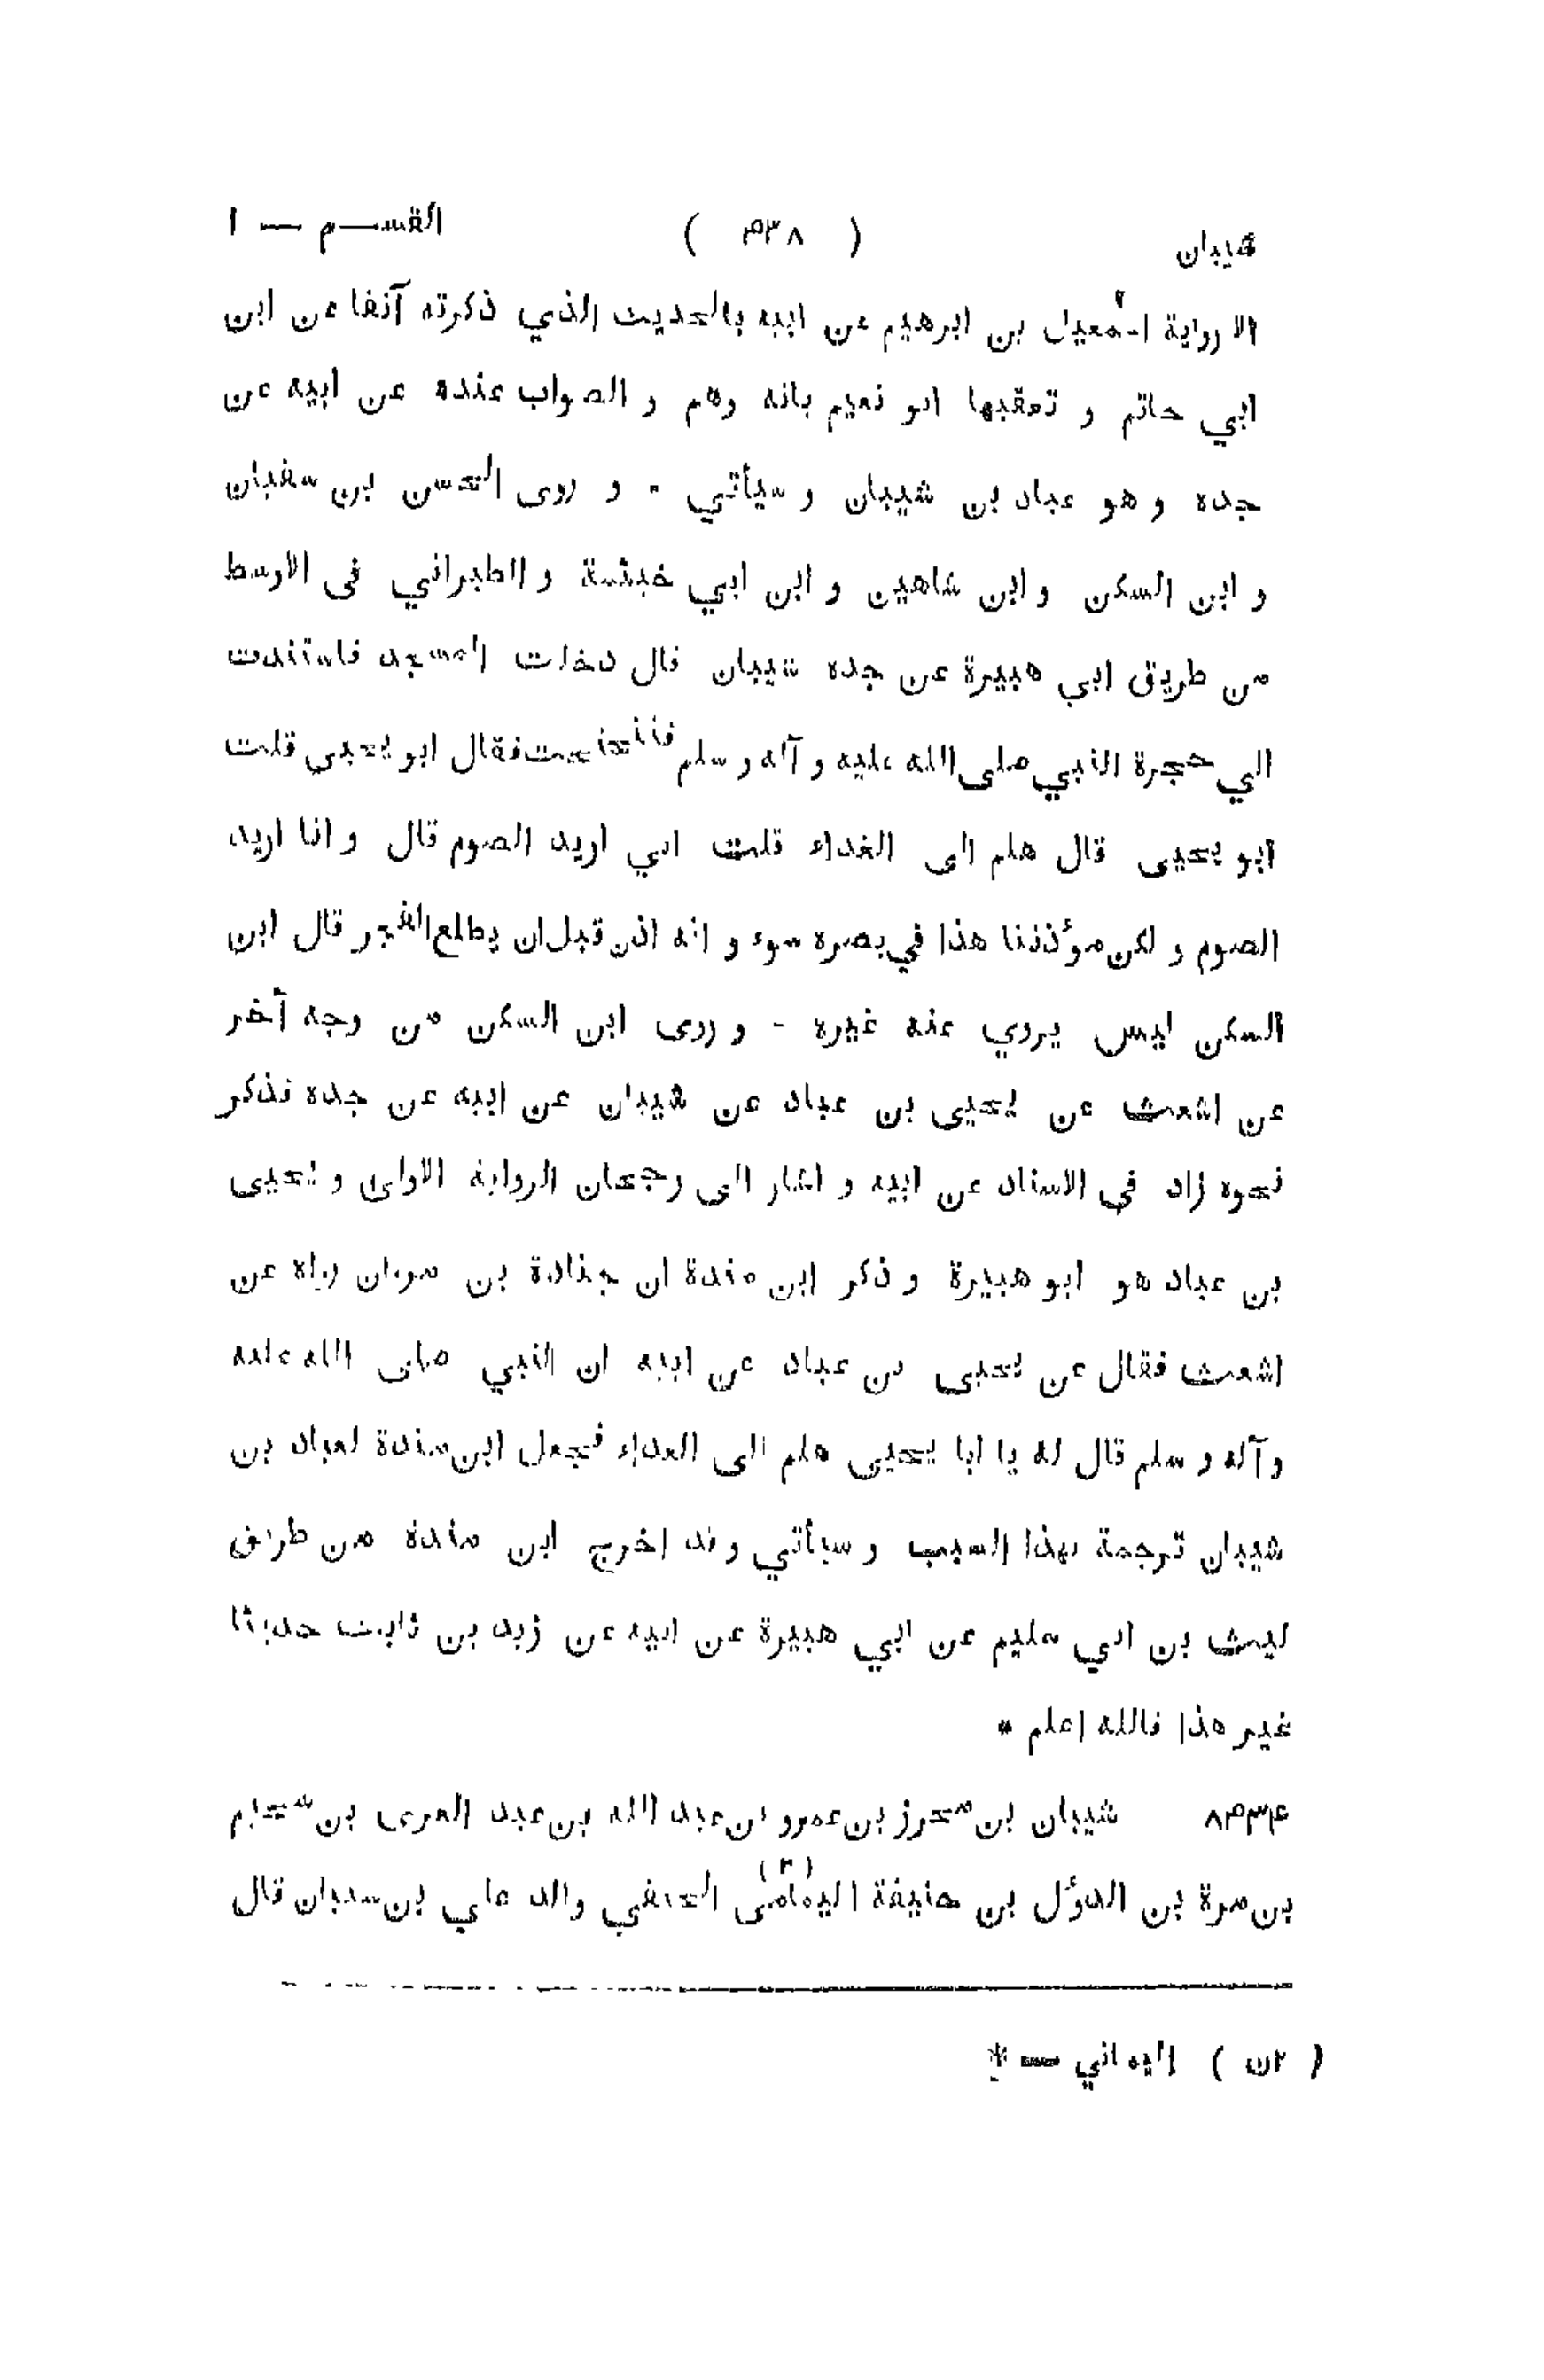 شيبان ( ۴۳۸ ) القســم — ا
الا رواية اسمعيل بن ابرهيم عن ابيه بالحديث الذي ذكرته آنفا عن ابن
ابي حاتم و تعقبها ابو نعيم بانه وهم و الصواب عنده عن ابيه عن
جده و هو عباد بن شيبان و سيأتي - و روى الحسن بن سفيان
و ابن السكن و ابن شاهين و ابن ابي خيثمة و الطبراني فى الاوسط
من طريق ابي هبيرة عن جده شيبان قال دخلت المسجد فاستندت
الي حجرة النبي صلى الله عليه و آله و سلم فتنحنحت فقال ابو يحيى قلت
ابو يحيى قال هلم الى الغداء قلت اني اريد الصوم قال و انا اريد
الصوم و لكن مؤذننا هذا في بصره سوء و انه اذن قبل ان يطلع الفجر قال ابن
السكن ليس يروي عنه غيره - و روى ابن السكن من وجه آخر
عن اشعث عن يحيى بن عباد عن شيبان عن ابيه عن جده فذكر
نحوه زاد في الاسناد عن ابيه و اشار الى رجحان الرواية الاولى و يحيى
بن عباد هو ابو هبيرة و ذكر ابن مندة ان جنادة بن مروان رواه عن
اشعث فقال عن يحيى بن عباد عن ابيه ان النبي صلى الله عليه
و آله و سلم قال له يا ابا يحيى هلم الى الغداء فجعل ابن مندة لعباد بن
شيبان ترجمة بهذا السبب و سيأتي و قد اخرج ابن مندة من طريق
ليث بن ابي سليم عن ابي هبيرة عن ابيه عن زيد بن ثابت حديثا
غير هذا فالله اعلم *
۸۴۳۴ شيبان بن محرز بن عمرو بن عبد الله بن عبد العزى بن سحيم
بن مرة بن الدؤل بن حنيفة اليمامى (۲) الحنفي والد علي بن شيبان قال
( ۲ن ) اليماني — *